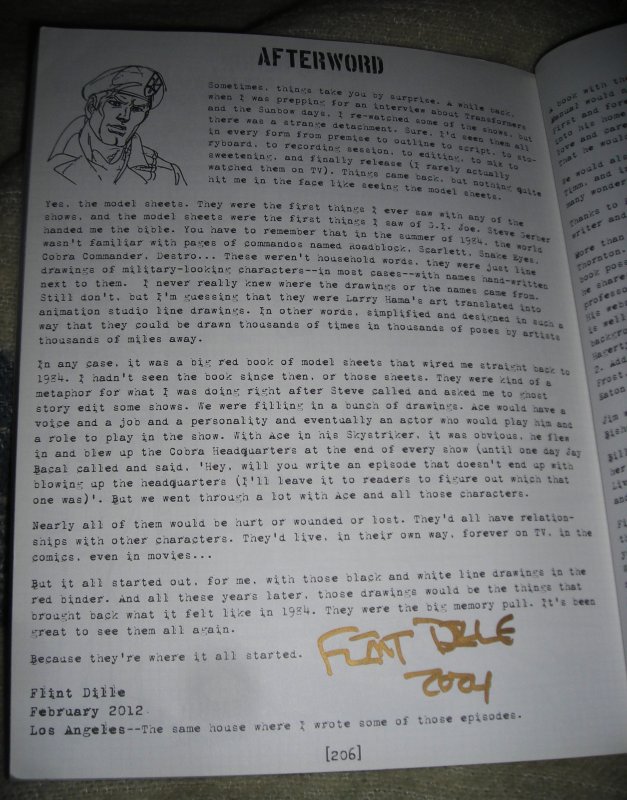 AFTERWORD
Sometimes, things take you by surprise. A while back,
when I was prepping for an interview about Transformers
and the Sunbow days, I re-watched some of the shows, but
there was a strange detachment. Sure, I'd seen them all
in every form from premise to outline to script, to sto-
ryboard, to recording session, to editing, to mix to
sweetening, and finally release (I rarely actually
watched them on TV). Things came back, but nothing quite
hit me in the face like seeing the model sheets.
Yes, the model sheets. They were the first things I ever saw with any of the
shows, and the model sheets were the first things I saw of G.I. Joe. Steve Gerber
handed me the bible. You have to remember that in the summer of 1984, the world
wasn't familiar with pages of commandos named Roadblock, Scarlett, Snake Eyes,
Cobra Commander, Destro... These weren't household words, they were just line
drawings of military-looking characters--in most cases--with names hand-written
next to them. I never really knew where the drawings or the names came from.
Still don't, but I'm guessing that they were Larry Hama's art translated into
animation studio line drawings. In other words, simplified and designed in such a
way that they could be drawn thousands of times in thousands of poses by artists
thousands of miles away.
In any case, it was a big red book of model sheets that wired me straight back to
1984. I hadn't seen the book since then, or those sheets. They were kind of a
metaphor for what I was doing right after Steve called and asked me to ghost
story edit some shows. We were filling in a bunch of drawings. Ace would have a
voice and a job and a personality and eventually an actor who would play him and
a role to play in the show. With Ace in his Skystriker, it was obvious, he flew
in and blew up the Cobra Headquarters at the end of every show (until one day Jay
Bacal called and said, 'Hey, will you write an episode that doesn't end up with
blowing up the headquarters (I'll leave it to readers to figure out which that
one was)'. But we went through a lot with Ace and all those characters.
Nearly all of them would be hurt or wounded or lost. They'd all have relation-
ships with other characters. They'd live, in their own way, forever on TV, in the
comics, even in movies...
But it all started out, for me, with those black and white line drawings in the
red binder. And all these years later, those drawings would be the things that
brought back what it felt like in 1984. They were the big memory pull. It's been
great to see them all again.
Because they're where it all started.
FLINT DILLE
Flint Dille
February 2012
Los Angeles--The same house where I wrote some of those episodes.
[206]
A book with the
would a
first and fore
into his home
love and care
that he would
He would als
Timm, and i
many wonder
Thanks to
writer and
More than
Thornton-
book pos
he share
professo
His web
is well
backgro
Hagert
2. Add
Frost.
Eaton
Jim
Bish
Bill
her
Liv
and